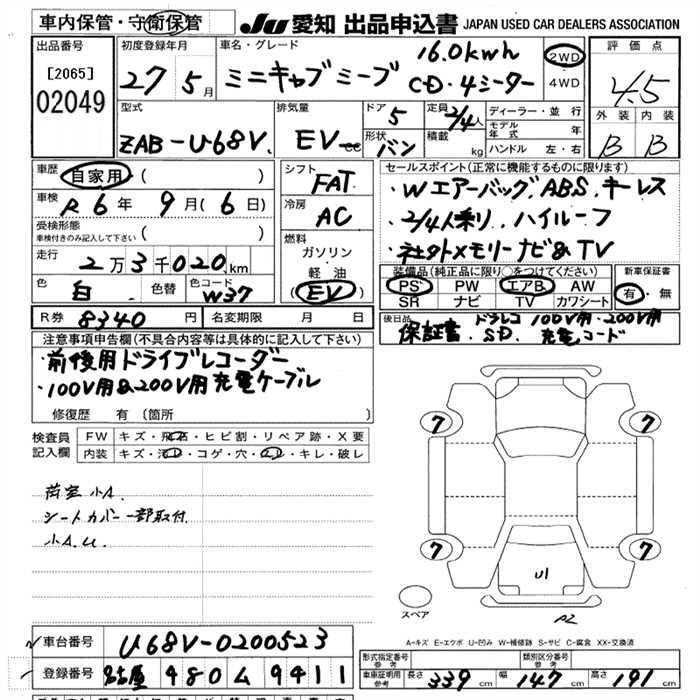 車内保管・守衛保管
JU 愛知 出品申込書 JAPAN USED CAR DEALERS ASSOCIATION
出品番号
[2065]
02049
初度登録年月
27 5月
車名・グレード
ミニキャブミーブ 16.0kwh
CD・4シーター
2WD
・
4WD
評価点
4.5
外装 内装
B B
型式
ZAB-U68V
排気量
EV cc
ドア 5
形状 バン
定員 2/4人
積載 kg
ディーラー・並行
モデル年式 年
ハンドル 左・右
車歴 自家用 ( )
車検 R6年 9月 (6日)
受検形態
車検付きのみ記入して下さい ( )
走行 2万3千020km
色 白 色替 カラーNo. W37
シフト
FAT
冷房
AC
燃料
ガソリン
・
軽油
(EV)
セールスポイント(正常に機能するものに限ります)
・Wエアーバッグ. ABS. キーレス
・2/4人乗り. ハイルーフ
・社外メモリーナビ&TV
装備品(純正品に限り○をつけてください)
PS PW エアB AW
SR ナビ TV カワシート
新車保証書
有・無
R券 8340円 名変期限 月 日
後日品 ドラレコ 100V用・200V用
保証書. SD. 充電コード
注意事項申告欄(不具合内容等は具体的に記入して下さい)
・前後用ドライブレコーダー
・100V用&200V用充電ケーブル
修復歴 有 (箇所 )
検査員記入欄
FW キズ・飛石・ヒビ割・リペア跡・X要
内装 キズ・汚レ・コゲ・穴・スレ・キレ・破レ
荷室小A.
シートカバー一部取付
小A.U.
7 7
7 7
U1
スペア
A2
A-キズ E-エクボ U-凹み W-補修跡 S-サビ C-腐食 XX-交換済
車台番号 U68V-0200523
登録番号 名古屋 480 ム 9411
型式指定番号 参考
類別区分番号 参考
車車証明用 参考 長さ 339cm 幅 147cm 高さ 191cm